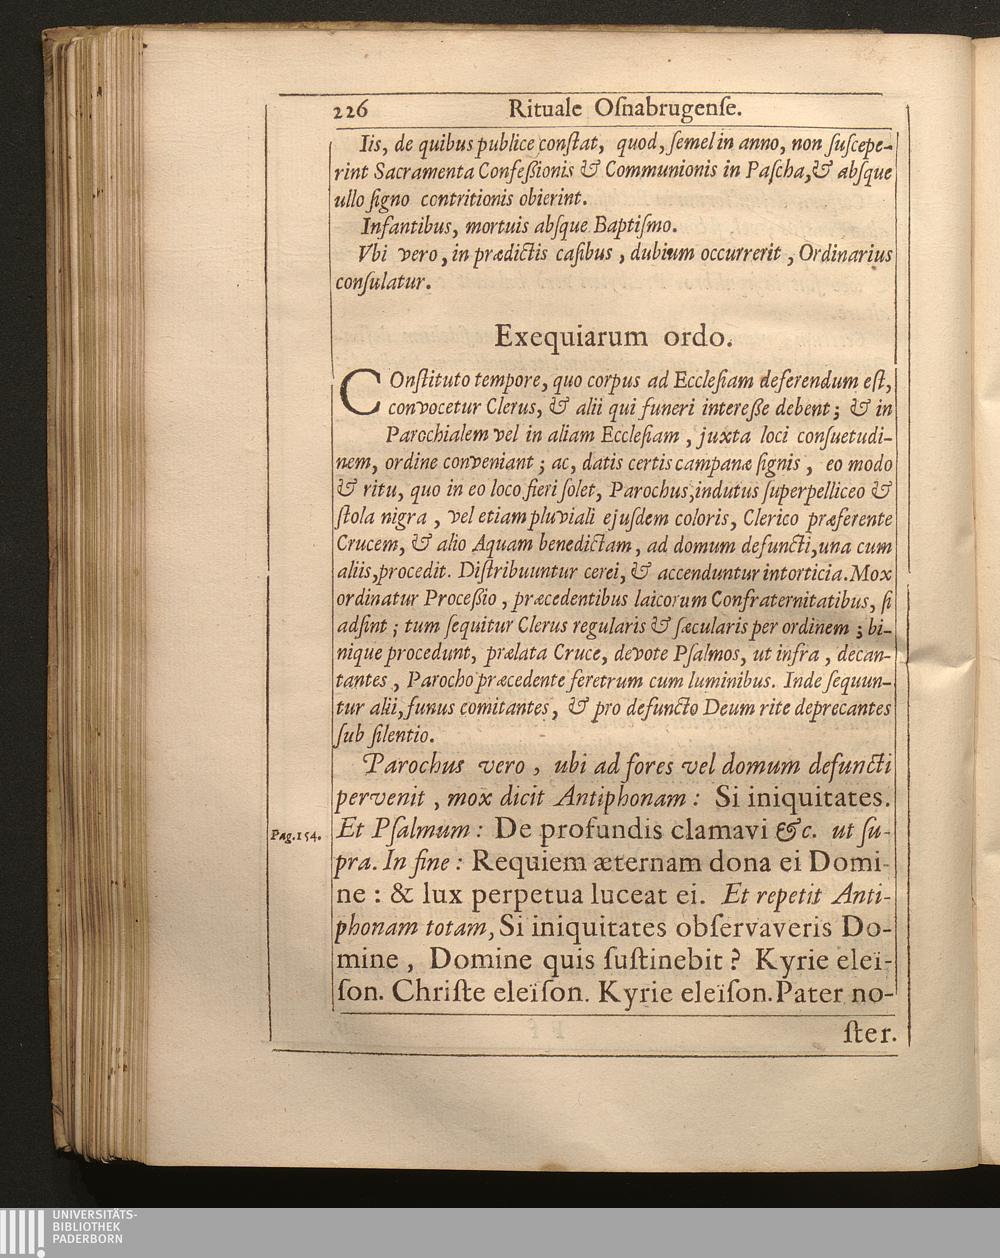 226 Rituale Oſnabrugenſe.
Iis, de quibus publice conſtat, quod, ſemel in anno, non ſuſcepe-
rint Sacramenta Confeßionis & Communionis in Paſcha, & abſque
ullo ſigno contritionis obierint.
Infantibus, mortuis abſque Baptiſmo.
Vbi vero, in prædictis caſibus, dubium occurrerit, Ordinarius
conſulatur.
Exequiarum ordo.
COnſtituto tempore, quo corpus ad Eccleſiam deferendum eſt,
convocetur Clerus, & alii qui funeri intereße debent; & in
Parochialem vel in aliam Eccleſiam, juxta loci conſuetudi-
nem, ordine conveniant; ac, datis certis campanæ ſignis, eo modo
& ritu, quo in eo loco fieri ſolet, Parochus, indutus ſuperpelliceo &
ſtola nigra, vel etiam pluviali ejuſdem coloris, Clerico præferente
Crucem, & alio Aquam benedictam, ad domum defuncti, una cum
aliis, procedit. Diſtribuuntur cerei, & accenduntur intorticia. Mox
ordinatur Proceßio, præcedentibus laicorum Confraternitatibus, ſi
adſint; tum ſequitur Clerus regularis & ſæcularis per ordinem; bi-
nique procedunt, prælata Cruce, devote Pſalmos, ut infra, decan-
tantes, Parocho præcedente feretrum cum luminibus. Inde ſequun-
tur alii, funus comitantes, & pro defuncto Deum rite deprecantes
ſub ſilentio.
Parochus vero, ubi ad fores vel domum defuncti
pervenit, mox dicit Antiphonam: Si iniquitates.
Pag. 154. Et Pſalmum: De profundis clamavi &c. ut ſu-
pra. In fine: Requiem æternam dona ei Domi-
ne: & lux perpetua luceat ei. Et repetit Anti-
phonam totam, Si iniquitates obſervaveris Do-
mine, Domine quis ſuſtinebit? Kyrie elei-
ſon. Chriſte eleïſon. Kyrie eleïſon. Pater no-
ſter.
UNIVERSITÄTS-
BIBLIOTHEK
PADERBORN